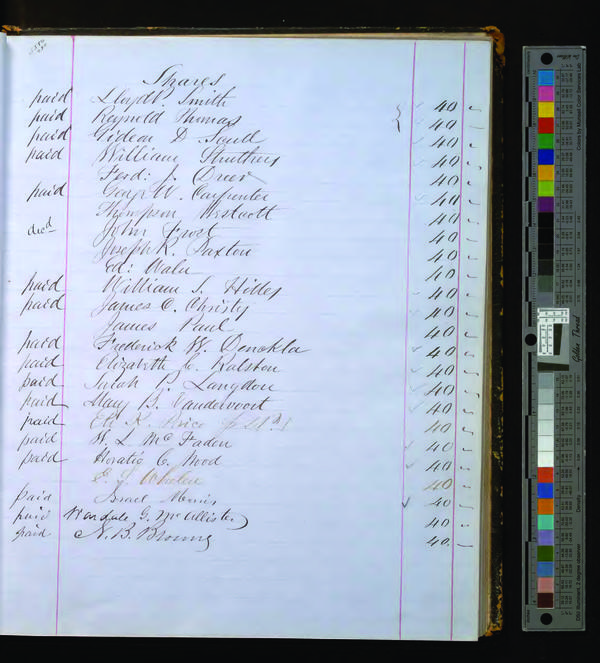 Shares
paid Lloyd P. Smith 40
paid Reynold Thomas 40
paid Gideon D. Scull 40
paid William Struthers 40
Ferd: J. Dreer 40
paid Geo. W. Carpenter 40
Thompson Westcott 40
died John Frost 40
Joseph R. Paxton 40
Ed: Waln 40
paid William S. Hilles 40
paid James C. Christy 40
James Paul 40
paid Frederick W. Donckla 40
paid Elizabeth C. Ralston 40
paid Sarah B. Langdon 40
paid Mary B. Vandervoort 40
paid Eli K. Price 40
paid W. L. McFaden 40
paid Horatio C. Wood 40
E. J. Whelen 40
paid Israel Morris 40
paid G. McAllister 40
paid N. B. Browne 40
Golden Thread